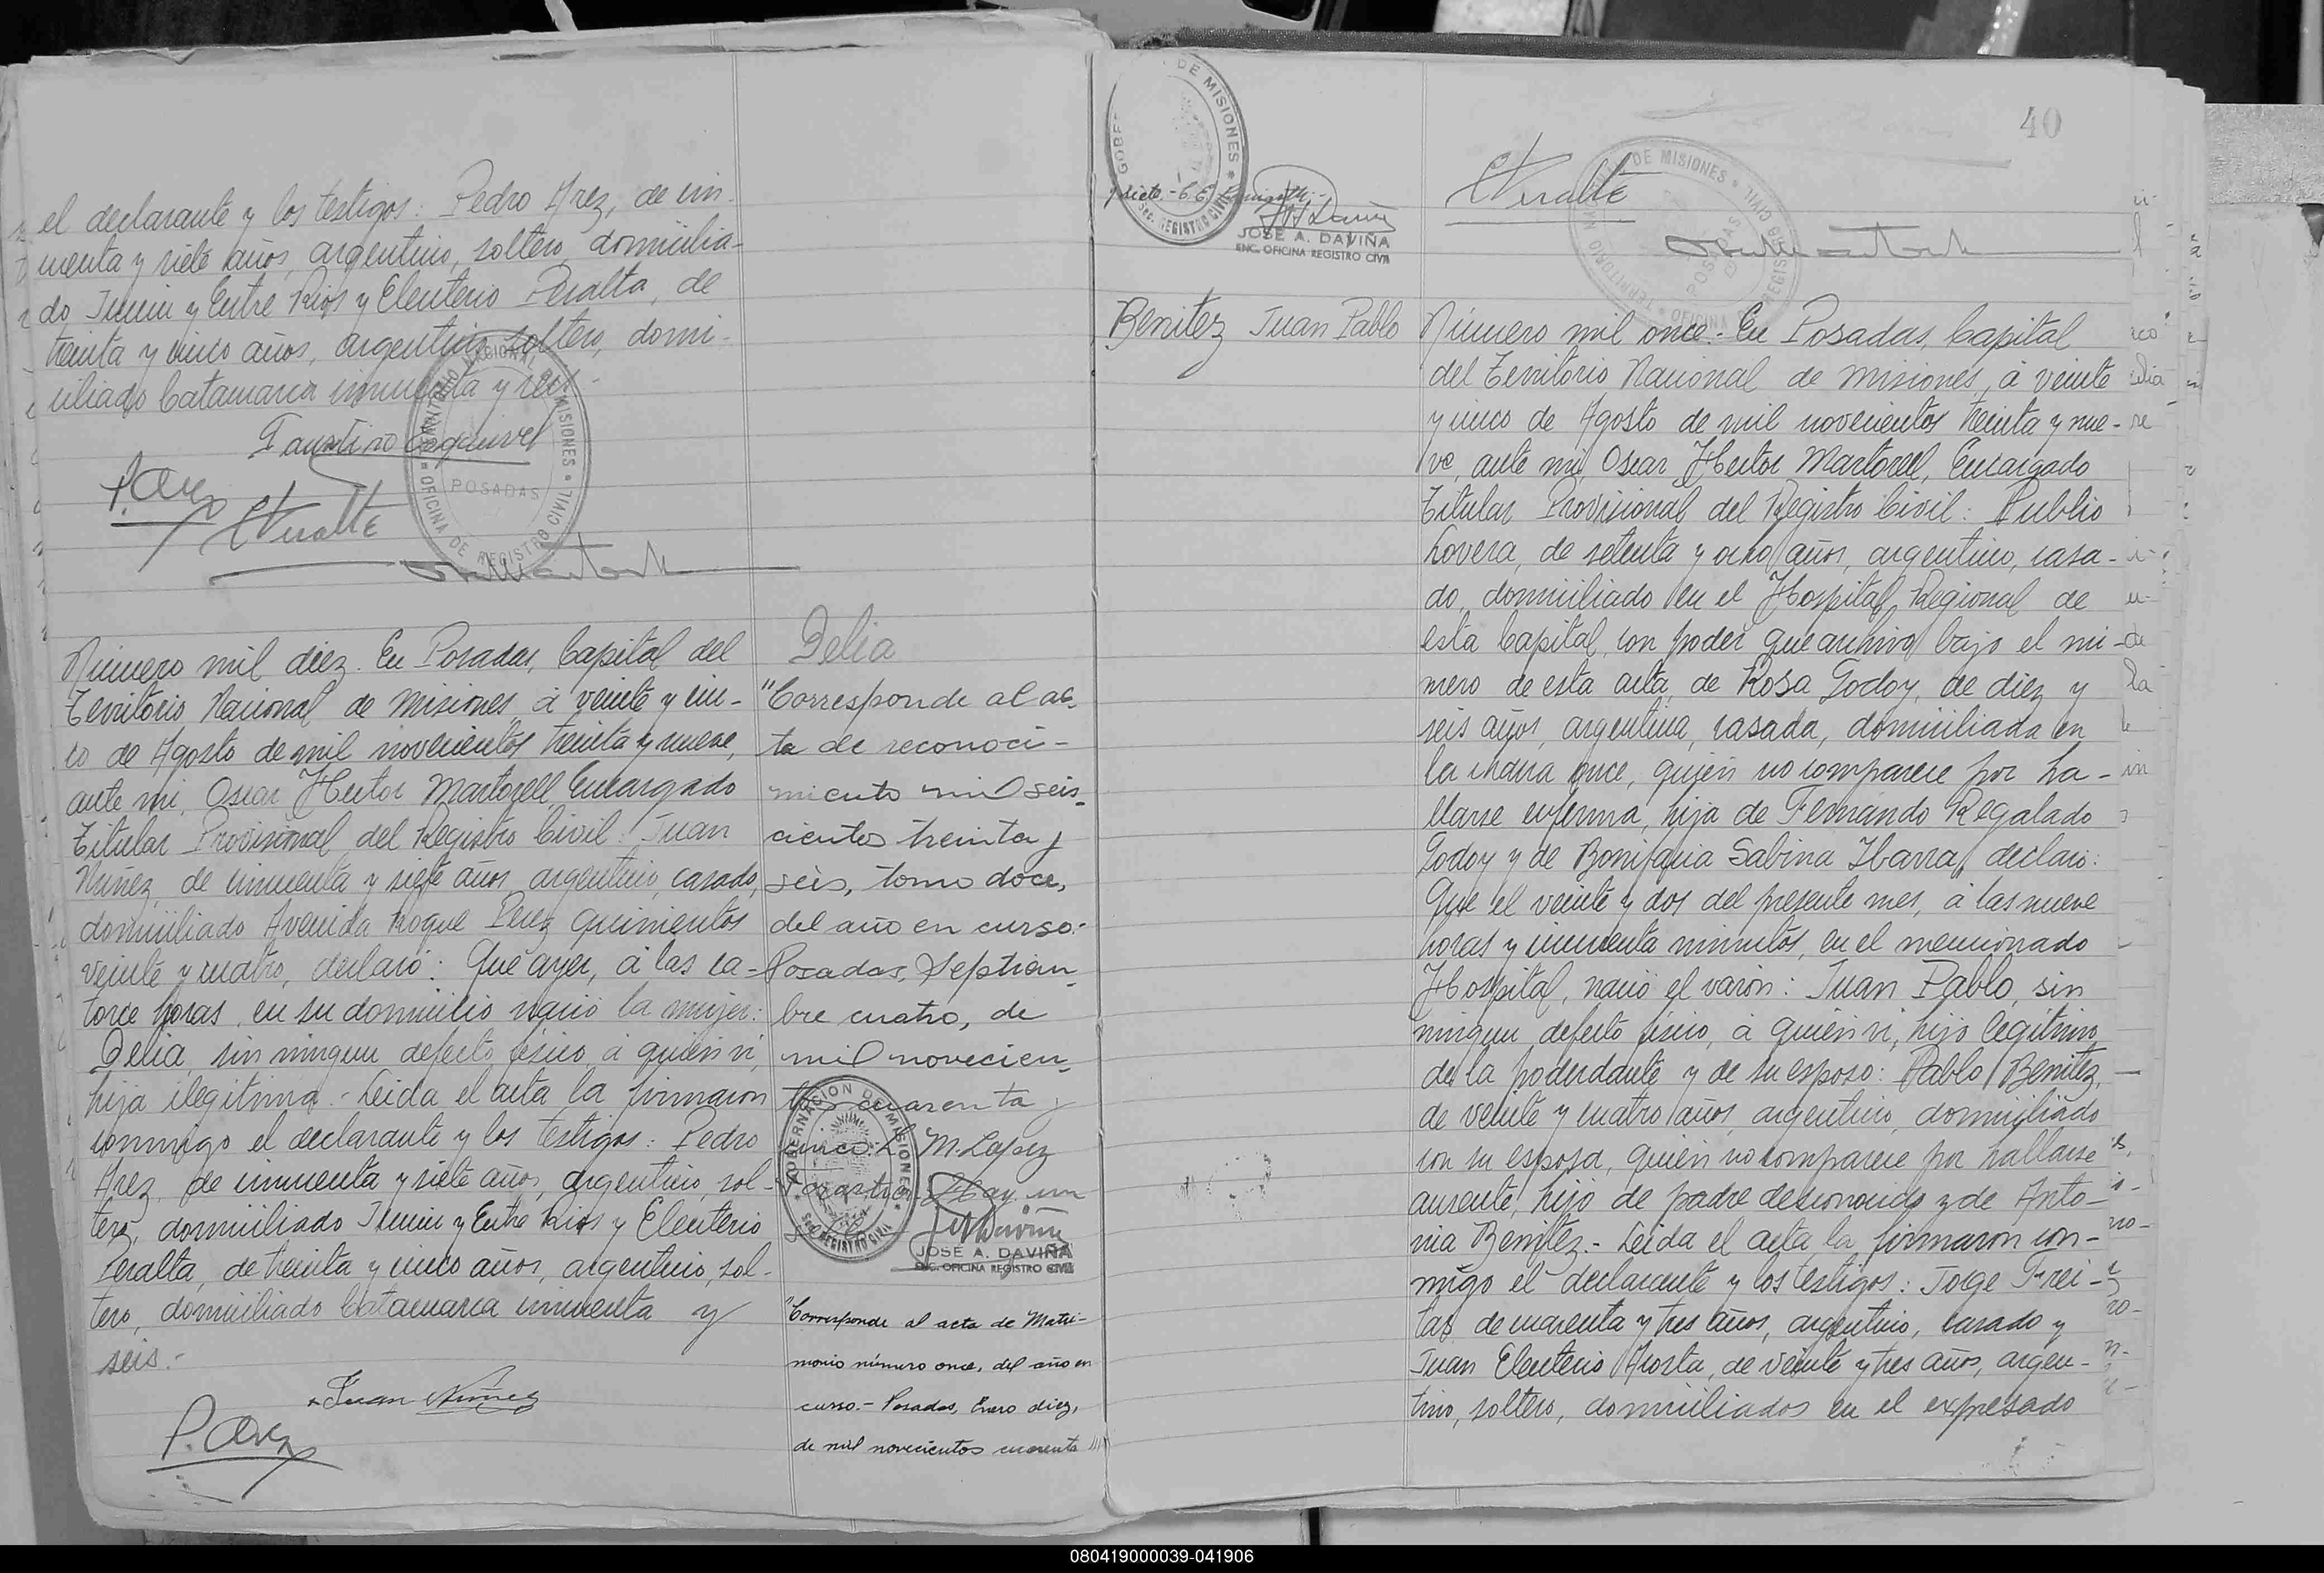 el declarante y los testigos: Pedro Arez, de cin-
cuenta y siete años, argentino, soltero, domicilia-
do Junin y Entre Rios y Eleuterio Peralta, de
treinta y cinco años, argentino, soltero, domi-
ciliado Catamarca cincuenta y seis.-
Faustino Esquivel
P. Arez
E Peralta
OFICINA DE REGISTRO CIVIL
POSADAS
Número mil diez. En Posadas, Capital del
Territorio Nacional de Misiones, á veinte y cin-
co de Agosto de mil novecientos treinta y nueve,
ante mi, Oscar Hector Martorell, Encargado
Titular Provisional del Registro Civil: Juan
Nuñez, de cincuenta y siete años, argentino, casado,
domiciliado Avenida Roque Perez quinientos
veinte y cuatro, declaró: Que ayer, á las ca-
torce horas, en su domicilio nació la mujer:
Delia, sin ningun defecto fisico, á quien vi,
hija ilegitima.- Leida el acta la firmaron
conmigo el declarante y los testigos: Pedro
Arez, de cincuenta y siete años, argentino, sol-
tero, domiciliado Junin y Entre Rios y Eleuterio
Peralta, de treinta y cinco años, argentino, sol-
tero, domiciliado Catamarca cincuenta y
seis.-
Juan Nuñez
P. Arez
Delia
"Corresponde al ac-
ta de reconoci-
miento mil seis-
cientos treinta y
seis, tomo doce,
del año en curso:-
Posadas, Septiem-
bre cuatro, de
mil novecien-
tos cuarenta y
cinco. L. M. Lopez
Hay un
sello
GOBERNACION DE MISIONES
REGISTRO CIVIL
JOSÉ A. DAVIÑA
ENC. OFICINA REGISTRO CIVIL
"Corresponde al acta de Matri-
monio número once, del año en
curso.- Posadas, Enero diez,
de mil novecientos cuarenta
40
DE MISIONES
REGISTRO CIVIL
y siete.-
JOSE A. DAVIÑA
ENC. OFICINA REGISTRO CIVIL
E Peralta
DE MISIONES
POSADAS
Benitez Juan Pablo
Número mil once.- En Posadas, Capital
del Territorio Nacional de Misiones, á veinte
y cinco de Agosto de mil novecientos treinta y nue-
ve, ante mi, Oscar Hector Martorell, Encargado
Titular Provisional del Registro Civil: Publio
Lovera, de setenta y ocho años, argentino, casa-
do, domiciliado en el Hospital Regional de
esta Capital, con poder que archivo bajo el nú-
mero de esta acta, de Rosa Godoy, de diez y
seis años, argentina, casada, domiciliada en
la chacra once, quien no comparece por ha-
llarse enferma, hija de Fernando Regalado
Godoy y de Bonifacia Sabina Ibarra, declaró:
Que el veinte y dos del presente mes, á las nueve
horas y cincuenta minutos, en el mencionado
Hospital, nació el varón: Juan Pablo, sin
ningun defecto fisico, á quien vi, hijo legitimo
de la poderdante y de su esposo: Pablo Benitez,
de veinte y cuatro años, argentino, domiciliado
con su esposa, quien no comparece por hallarse
ausente, hijo de padre desconocido y de Anto-
nia Benitez.- Leida el acta la firmaron con-
migo el declarante y los testigos: Jorge Frei-
tas, de cuarenta y tres años, argentino, casado y
Juan Eleuterio Acosta, de veinte y tres años, argen-
tino, soltero, domiciliados en el expresado
080419000039-041906